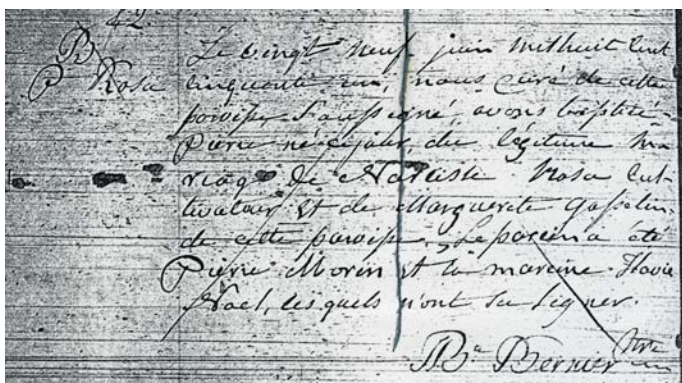 42.
B
P. Rosa
Le vingt neuf juin mil huit cent
cinquante un, nous curé de cette
paroisse soussigné, avons baptisé
Pierre né ce jour, du légitime ma
riage de Narcisse Rosa cul
tivateur et de Marguerite Gosselin
de cette paroisse. Le parrain a été
Pierre Morin et la marraine Flavie
Noël, lesquels n'ont su signer.
Bernier Ptre